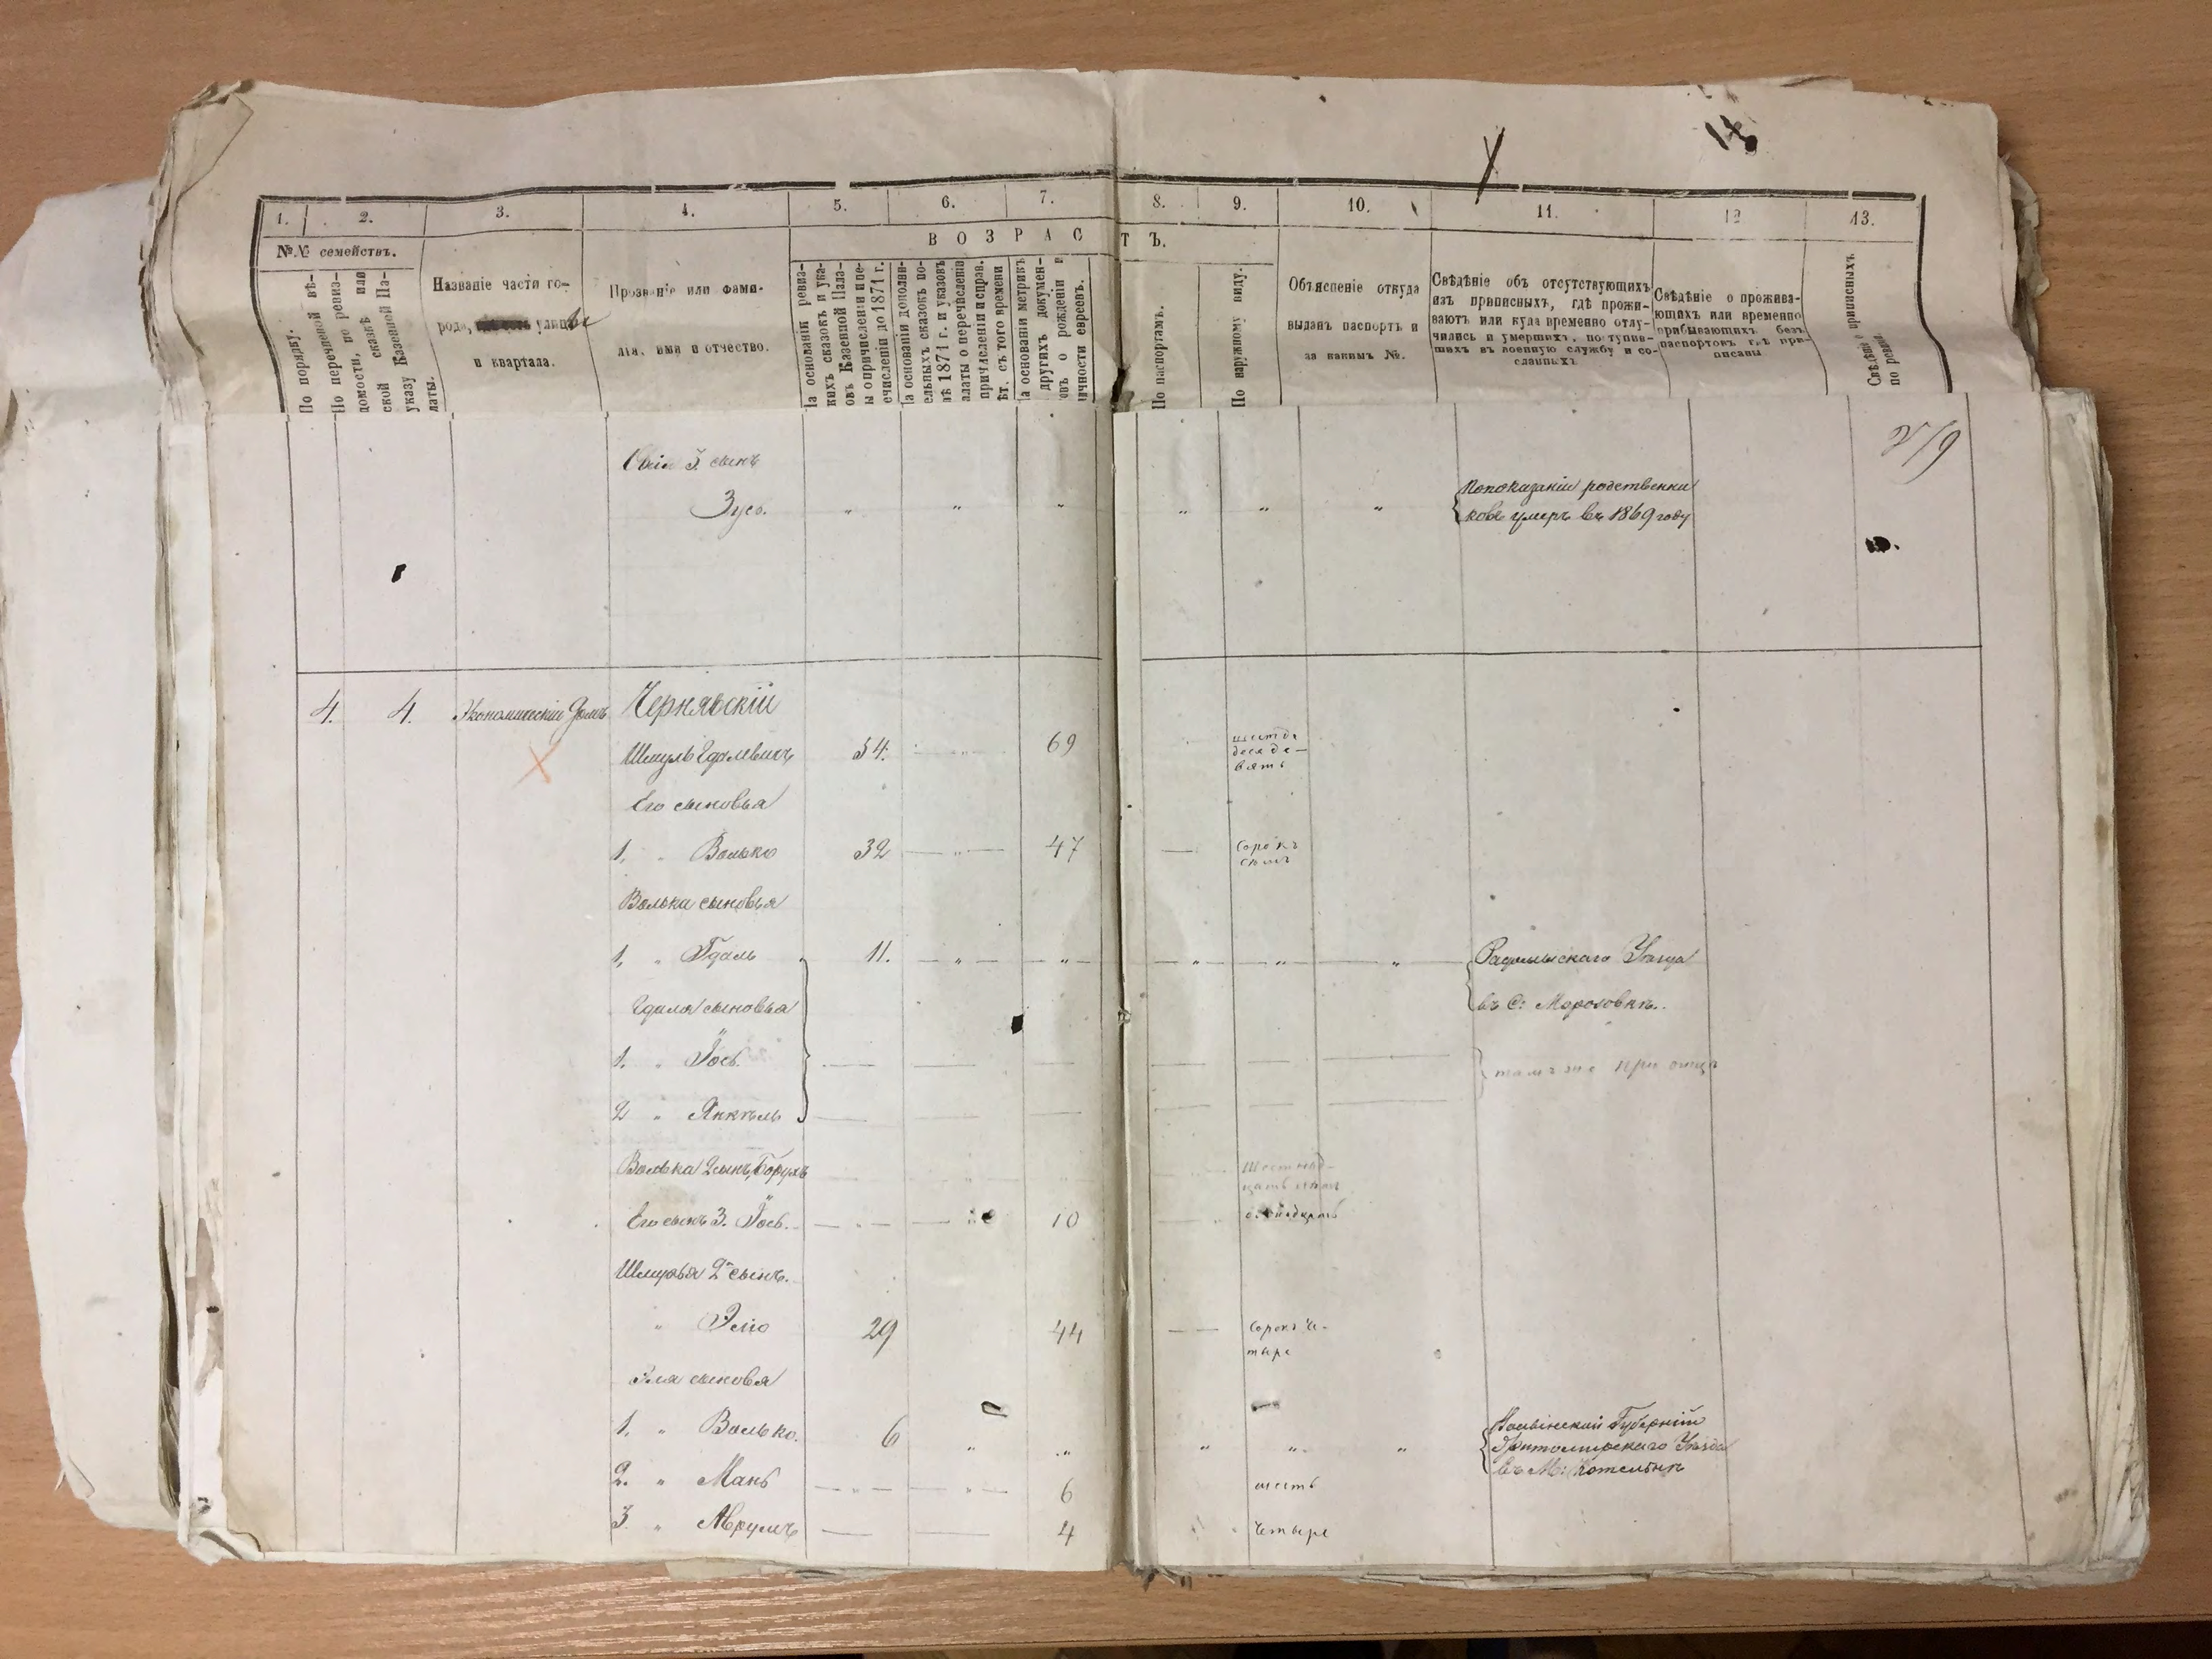 1. 2. 3. 4. 5. 6. 7. 8. 9. 10. 11. 12 13.
№№ семействъ.
ВОЗРАСТЪ.
По порядку.
По перечневой вѣ-
домости, по ревиз-
ской сказкѣ или
указу Казенной Па-
латы.
Названіе части го-
рода, улицы
и квартала.
Прозваніе или фами-
лія, имя и отчество.
На основаніи ревиз-
кихъ сказокъ и ука-
овъ Казенной Пала-
ы о причисленіи и пе-
ечисленіи до 1871 г.
На основаніи дополни-
ельныхъ сказокъ по-
лѣ 1871 г. и указовъ
алаты о перечисленіи
причисленіи и справ.
ѣт. съ того времени
На основаніи метрикъ
другихъ докумен-
овъ о рожденіи и
ичности евреевъ.
По паспортамъ.
По наружному виду.
Объясненіе откуда
выданъ паспортъ и
за какимъ №.
Свѣдѣніе объ отсутствующихъ
изъ приписныхъ, гдѣ прожи-
ваютъ или куда временно отлу-
чились и умершихъ, поступив-
шихъ въ военную службу и со-
сланныхъ
Свѣдѣніе о прожива-
ющихъ или временно
прибывающихъ безъ
паспортовъ гдѣ при-
писаны
Свѣдѣніе о приписныхъ
по ревизіи
3. сынъ
Зусь.
По показанію родственни
ковъ умеръ въ 1869 году
4. 4. Экономическій Домъ Чернявскій
Шмуль Гдалевичъ 54. 69 шестьде
десядe-
вять
Его сыновья
1. " Волько 32 47 Сорокъ
семь
Волька сыновья
1. " Гдаль 11. Радомысльскаго Уѣзда
въ С: Морозовкѣ.
Гдаля сыновья
1. " Іось.
2 " Янкель тамъ же при отцѣ
Волька 2 сынъ, Борухъ
Его сынъ 3. Іось. 10
Шмуля 2й сынъ.
" Эліо 29 44 Сорокъ че-
тыре
Эля сыновья
1. " Волько. 6 Волынской Губерніи
Житомирскаго Уѣзда
въ М: Котельнѣ
2. " Мань 6 шесть
3 " Аврумъ 4 Четыре